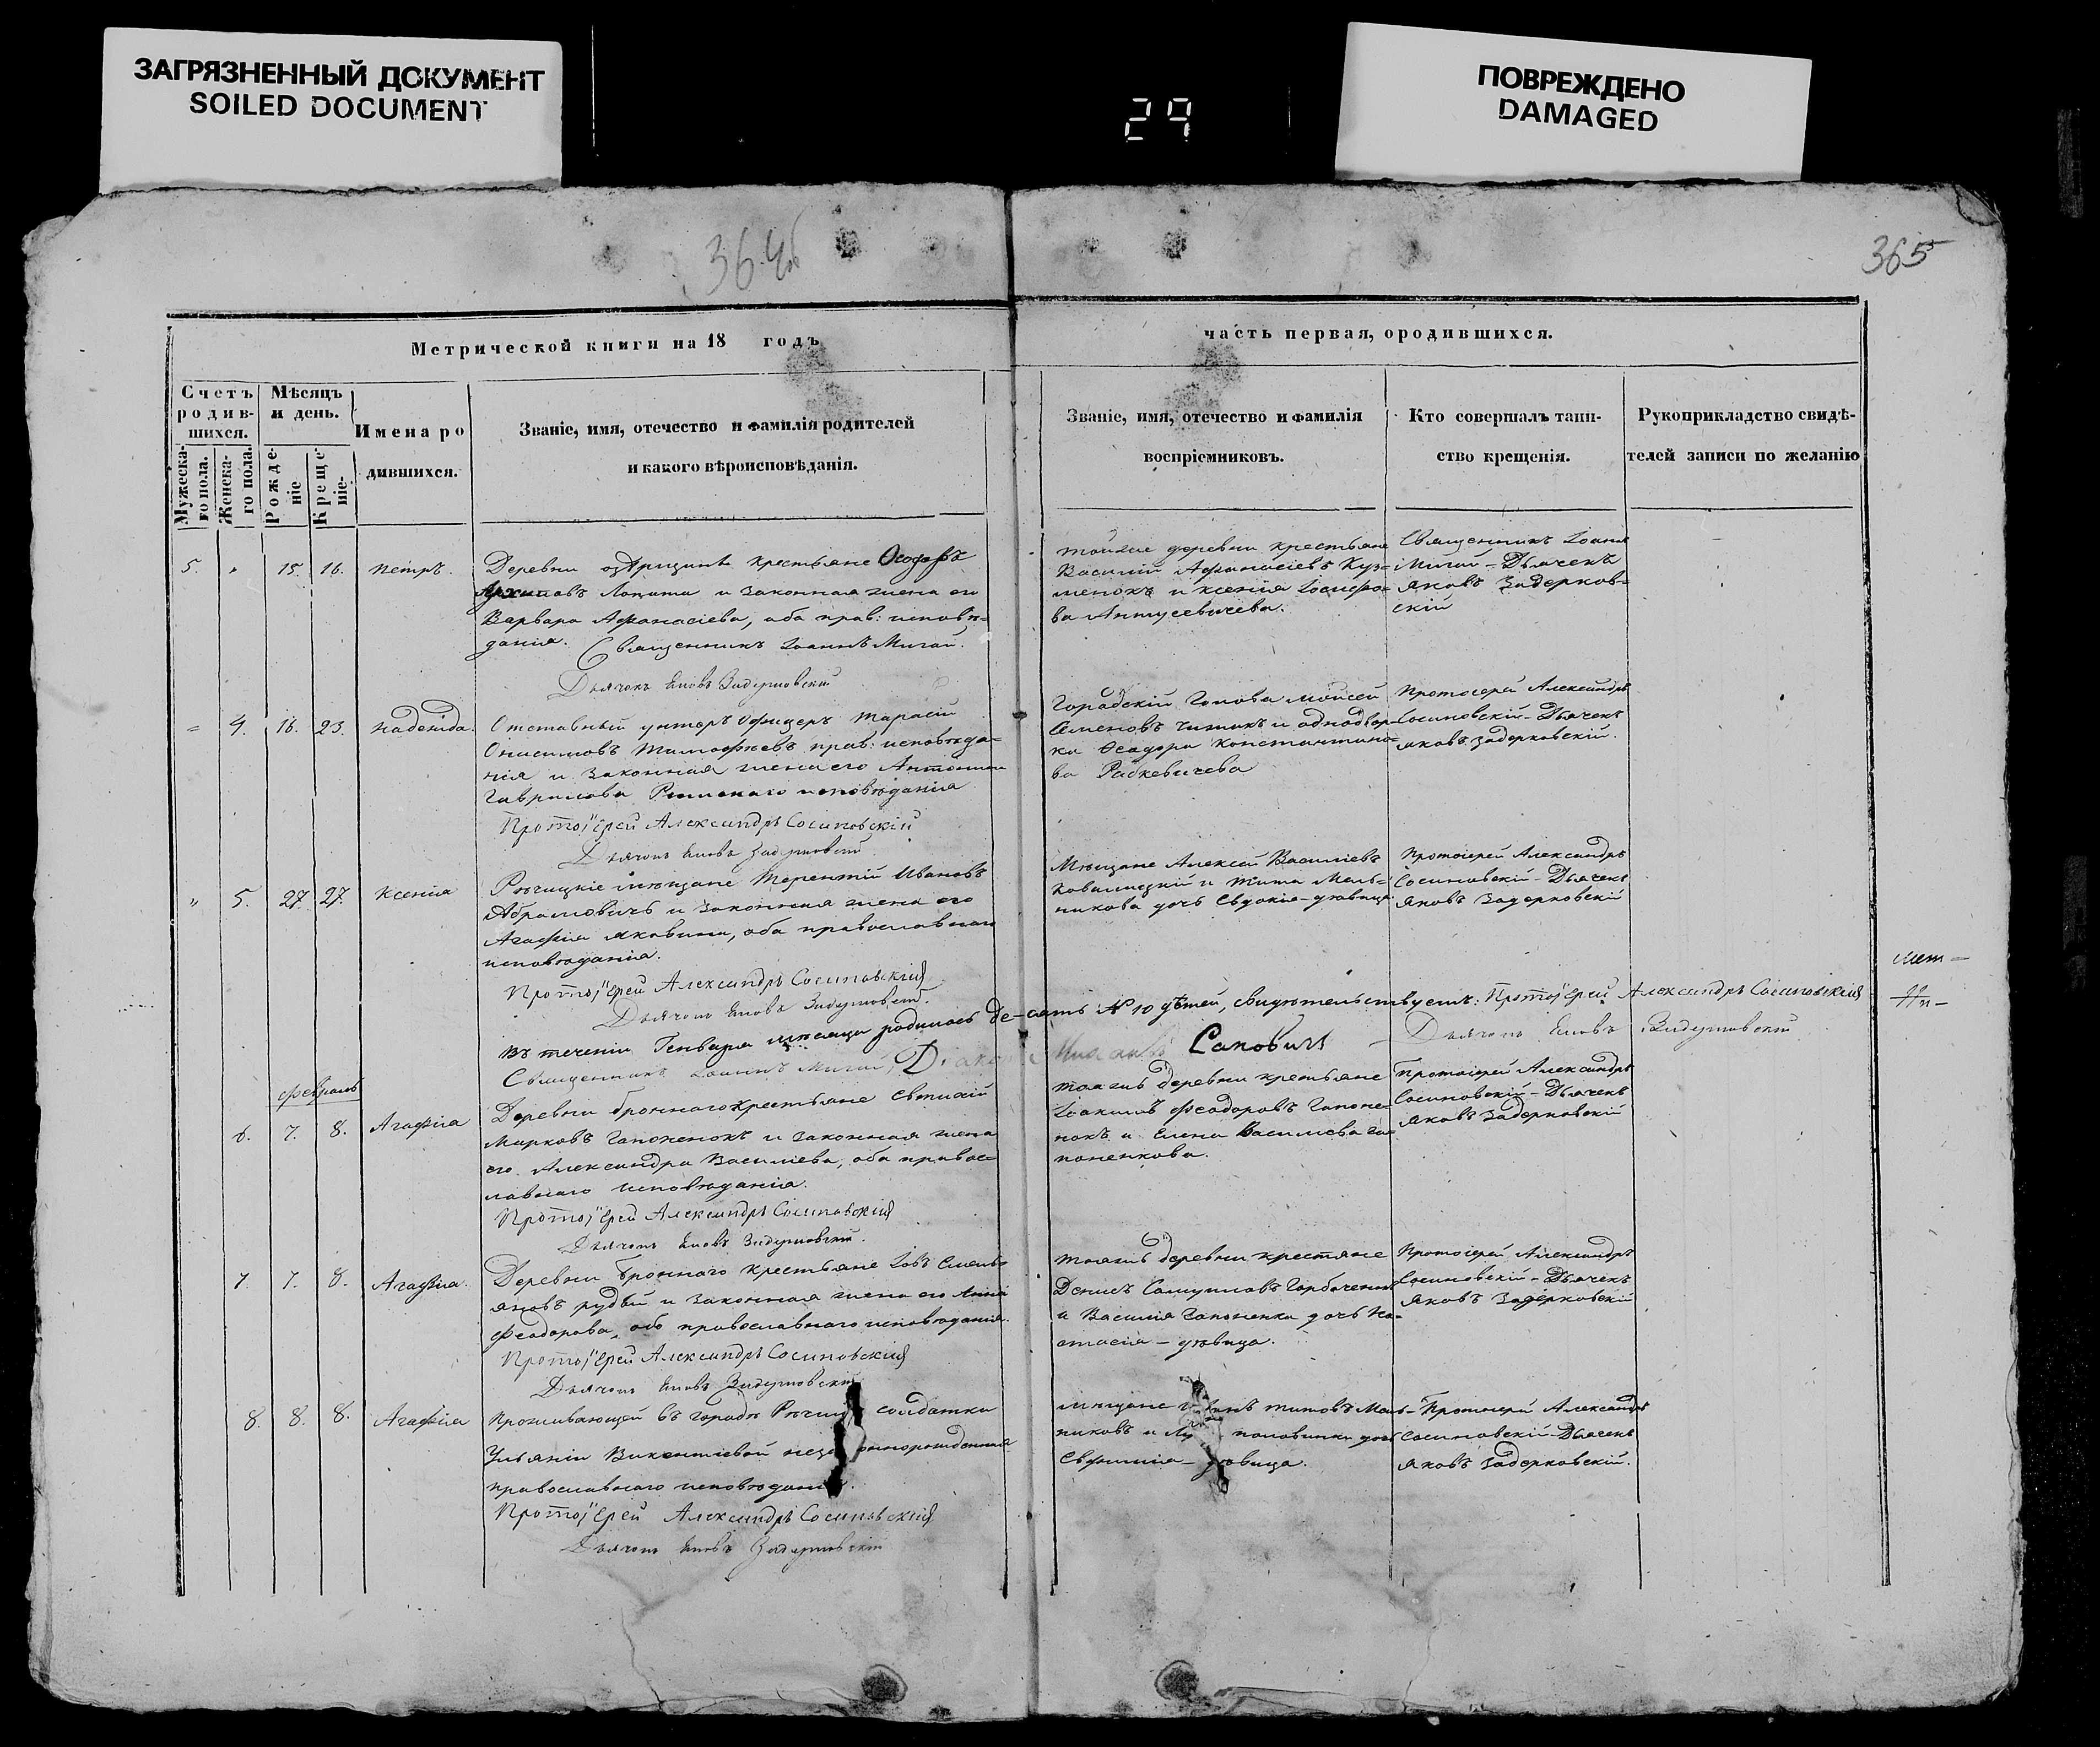 ЗАГРЯЗНЕННЫЙ ДОКУМЕНТ
SOILED DOCUMENT
29
ПОВРЕЖДЕНО
DAMAGED
364об
365
Метрической книги на 18 годъ
часть первая, ородившихся.
Счетъ родив-шихся.
Мужеска-го пола.
Женска-го пола.
Мѣсяцъ и день.
Рожде-ніе
Креще-ніе.
Имена ро
дившихся.
Званіе, имя, отечество и фамилія родителей
и какого вѣроисповѣданія.
Званіе, имя, отечество и фамилія
воспріемниковъ.
Кто совершалъ таин-
ство крещенія.
Рукоприкладство свидѣ-
телей записи по желанію
5. " 15. 16. Петръ.
Деревни Озерщинѣ крестьяне
Лопата и законная жена его
Варвара Афанасіева, оба прав: исповѣ=
данія. Священникъ Іоаннъ Мигай.
Дьячекъ Яковъ Задерковскій
тойже деревни крестьяне
Василій Афанасіевъ Куз=
менокъ и Ксенія Іосифо=
ва Антусевичева.
Священникъ Іоаннъ
Мигай - Дьячекъ
Яковъ Задерков=
скій
= 4. 16. 23. Надежда.
Отставный унтеръ офицеръ Тарасій
Онисимовъ Тимофѣевъ прав: исповѣда=
нія и законная жена его Антонина
Гаврилова Римскаго исповѣданія
Протоіерей Александръ Сосиновскій
Дьячекъ Яковъ Задерковскій
Городскій Голова Моисей
Семеновъ Чижикъ и однодвор=
ка Феодора Константино=
ва Рабкевичева
Протоіерей Александръ
Сосиновскій - Дьячекъ
Яковъ Задерковскій.
" 5. 27. 27. Ксенія
Рѣчицкіе мѣщане Терентій Ивановъ
Абрамовичъ и законная жена его
Агафія Яковина, оба православнаго
исповѣданія.
Протоіерей Александръ Сосиновскій
Дьячекъ Яковъ Задерковскій.
Мѣщане Алексѣй Василіевъ
Ковалицкій и Тита Мель=
никова дочь Евдокія - дѣвица
Протоіерей Александръ
Сосиновскій - Дьячекъ
Яковъ Задерковскій
Въ теченіи Генваря мѣсяца родилось де-сять № 10 дѣтей, свидѣтельствуемъ: Протоіерей Александръ Сосиновскій
Священникъ Іоаннъ Мигай, Діаконъ Сапович Дьячекъ Яковъ Задерковскій
Февраль
6. 7. 8. Агафія
Деревни Броннаго крестьяне Евтихій
Марковъ Гапоненокъ и законная жена
его Александра Василіева, оба правос=
лавнаго исповѣданія.
Протоіерей Александръ Сосиновскій
Дьячекъ Яковъ Задерковскій.
тояжъ деревни крестьяне
Іоакимъ Феодоровъ Гапоне=
нокъ и Елена Василіева Га=
поненкова.
Протоіерей Александръ
Сосиновскій - Дьячекъ
Яковъ Задерковскій
7. 7. 8. Агафія.
Деревни Броннаго крестьяне Іовъ Емель=
яновъ Рудый и законная жена его Анна
Феодорова, оба православнаго исповѣданія.
Протоіерей Александръ Сосиновскій
Дьячекъ Яковъ Задерковскій
тояжъ деревни крестьяне
Денисъ Самуиловъ Горбаченокъ
и Василія Гапоненка дочь На=
стасія - дѣвица.
Протоіерей Александръ
Сосиновскій - Дьячекъ
Яковъ Задерковскій
8. 8. 8. Агафія
Проживающей въ городѣ Рѣчицѣ солдатки
Ульяніи Викентіевой незаконнорожденная
православнаго исповѣданія.
Протоіерей Александръ Сосиновскій
Дьячекъ Яковъ Задерковскій
мѣщане Титовъ Мель=
никовъ и половинки дочь
Евфимія - дѣвица.
Протоіерей Александръ
Сосиновскій - Дьячекъ
Яковъ Задерковскій.